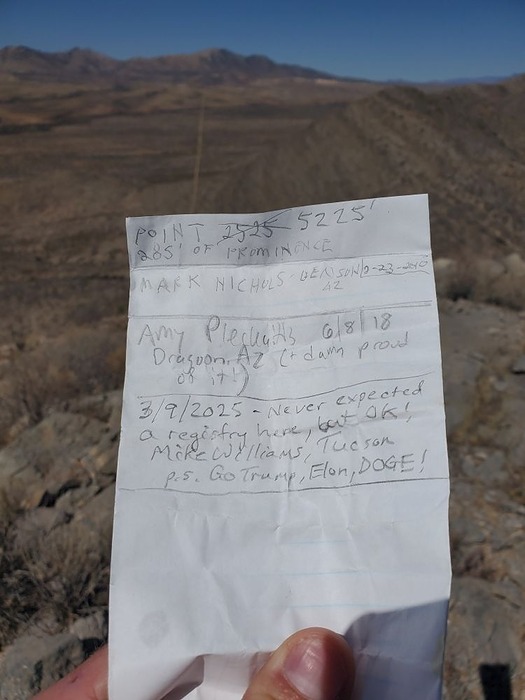 POINT 2525 5225'
285' OF PROMINENCE
MARK NICHOLS - BENSON
AZ
Amy 6/8/18
Dragoon, AZ (+ damn proud
of it!)
3/9/2025 - Never expected
a registry here, but OK!
Mike Williams, Tucson
p.s. Go Trump, Elon, DOGE!